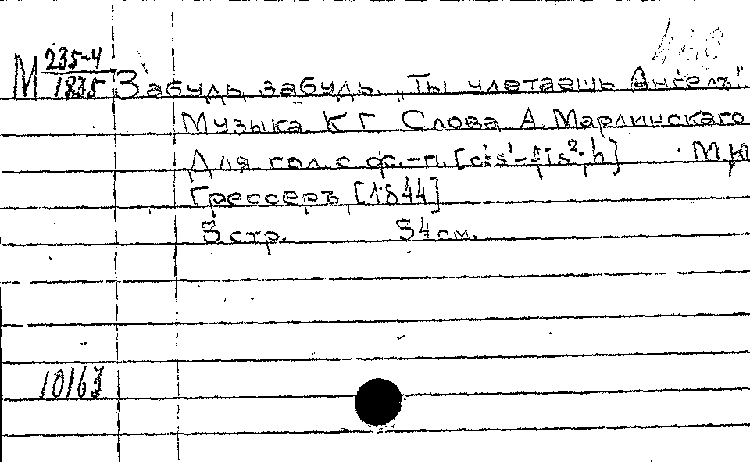 М 235-4
1835
Забудь, забудь. „Ты улетаешь Ангелъ"
Музыка К Г Слова А. Марлинскаго
Для гол. с ф.-п. [cis¹-fis²; h] М, Ю
Грессеръ, [1844]
5 стр. 34 см.
10163